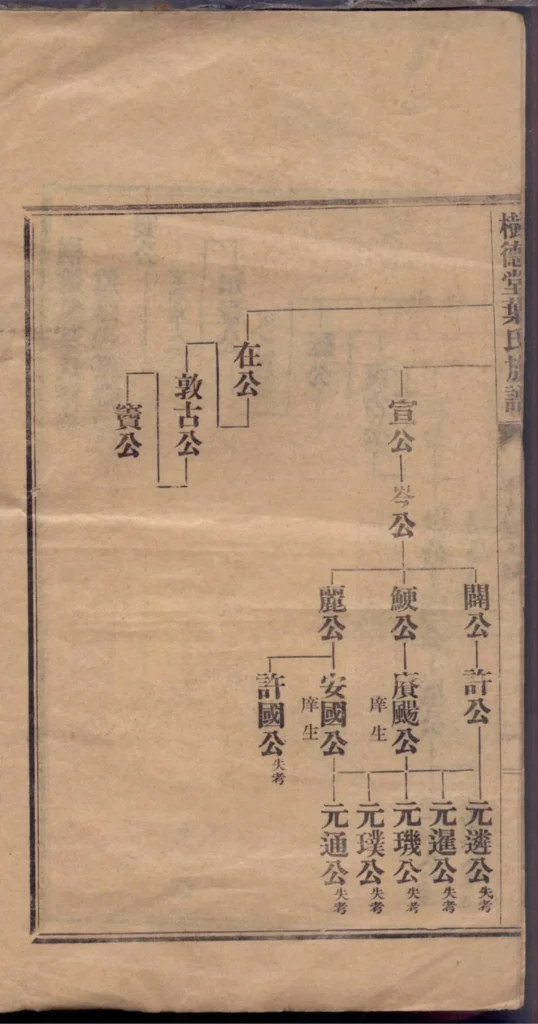 樹德堂葉氏族譜
宣公
岑公
闗公
鯁公
麗公
許公
賡颺公
庠生
安國公
庠生
許國公失考
元遴公失考
元暹公失考
元璣公失考
元璞公失考
元通公失考
在公
敦古公
寶公